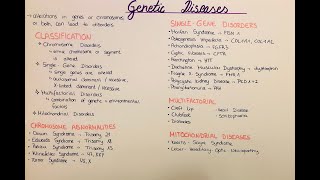 Genetic Diseases
• Alterations in genes or chromosomes or both can lead to disorders
CLASSIFICATION
Chromosome Disorders
entire chromosome or segment is altered
Single-Gene Disorders
single genes are altered
autosomal dominant / recessive
X-linked dominant / recessive
Multifactorial Disorders
combination of genetic + environmental factors
Mitochondrial Disorders
CHROMOSOME ABNORMALITIES
Down Syndrome - Trisomy 21
Edwards Syndrome - Trisomy 18
Patau Syndrome - Trisomy 13
Klinefelter Syndrome - 47, XXY
Syndrome - 45, X
SINGLE-GENE DISORDERS
Marfan Syndrome - FBN 1
Osteogenesis Imperfecta - COL1A1, COL1A2
Achondroplasia - FGFR3
Cystic Fibrosis - CFTR
Huntington's
Duchenne Muscular Dystrophy - dystrophin
Fragile X Syndrome - FMR 1
Polycystic Kidney Disease - PKD 1+2
Phenylketonuria - PAH
MULTIFACTORIAL
Cleft Lip
Heart Disease
Clubfoot
Schizophrenia
Diabetes
MITOCHONDRIAL DISEASES
Kearns - Sayre Syndrome
Leber Hereditary Optic Neuropathy